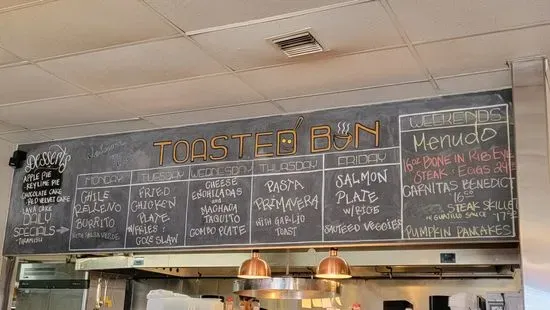 Desserts
APPLE PIE
KEY LIME PIE
CHOCOLATE CAKE
RED VELVET CAKE
LAVA CAKE
DAILY
SPECIALS
TIRAMISU
TOASTED BUN
MONDAY
CHILE
RELLENO
BURRITO
WITH SALSA VERDE
TUESDAY
FRIED
CHICKEN
PLATE
W/FRIES &
COLE SLAW
WEDNESDAY
CHEESE
ENCHILADAS
AND
MACHACA
TAQUITO
COMBO PLATE
THURSDAY
PASTA
PRIMAVERA
WITH GARLIC
TOAST
FRIDAY
SALMON
PLATE
W/RICE
SAUTEED VEGGIES
WEEKENDS
Menudo
16oz BONE IN RIB EYE
STEAK & EGGS 24
CARNITAS BENEDICT
16
STEAK SKILLET
IN GUAJILLO SAUCE 17
PUMPKIN PANCAKES